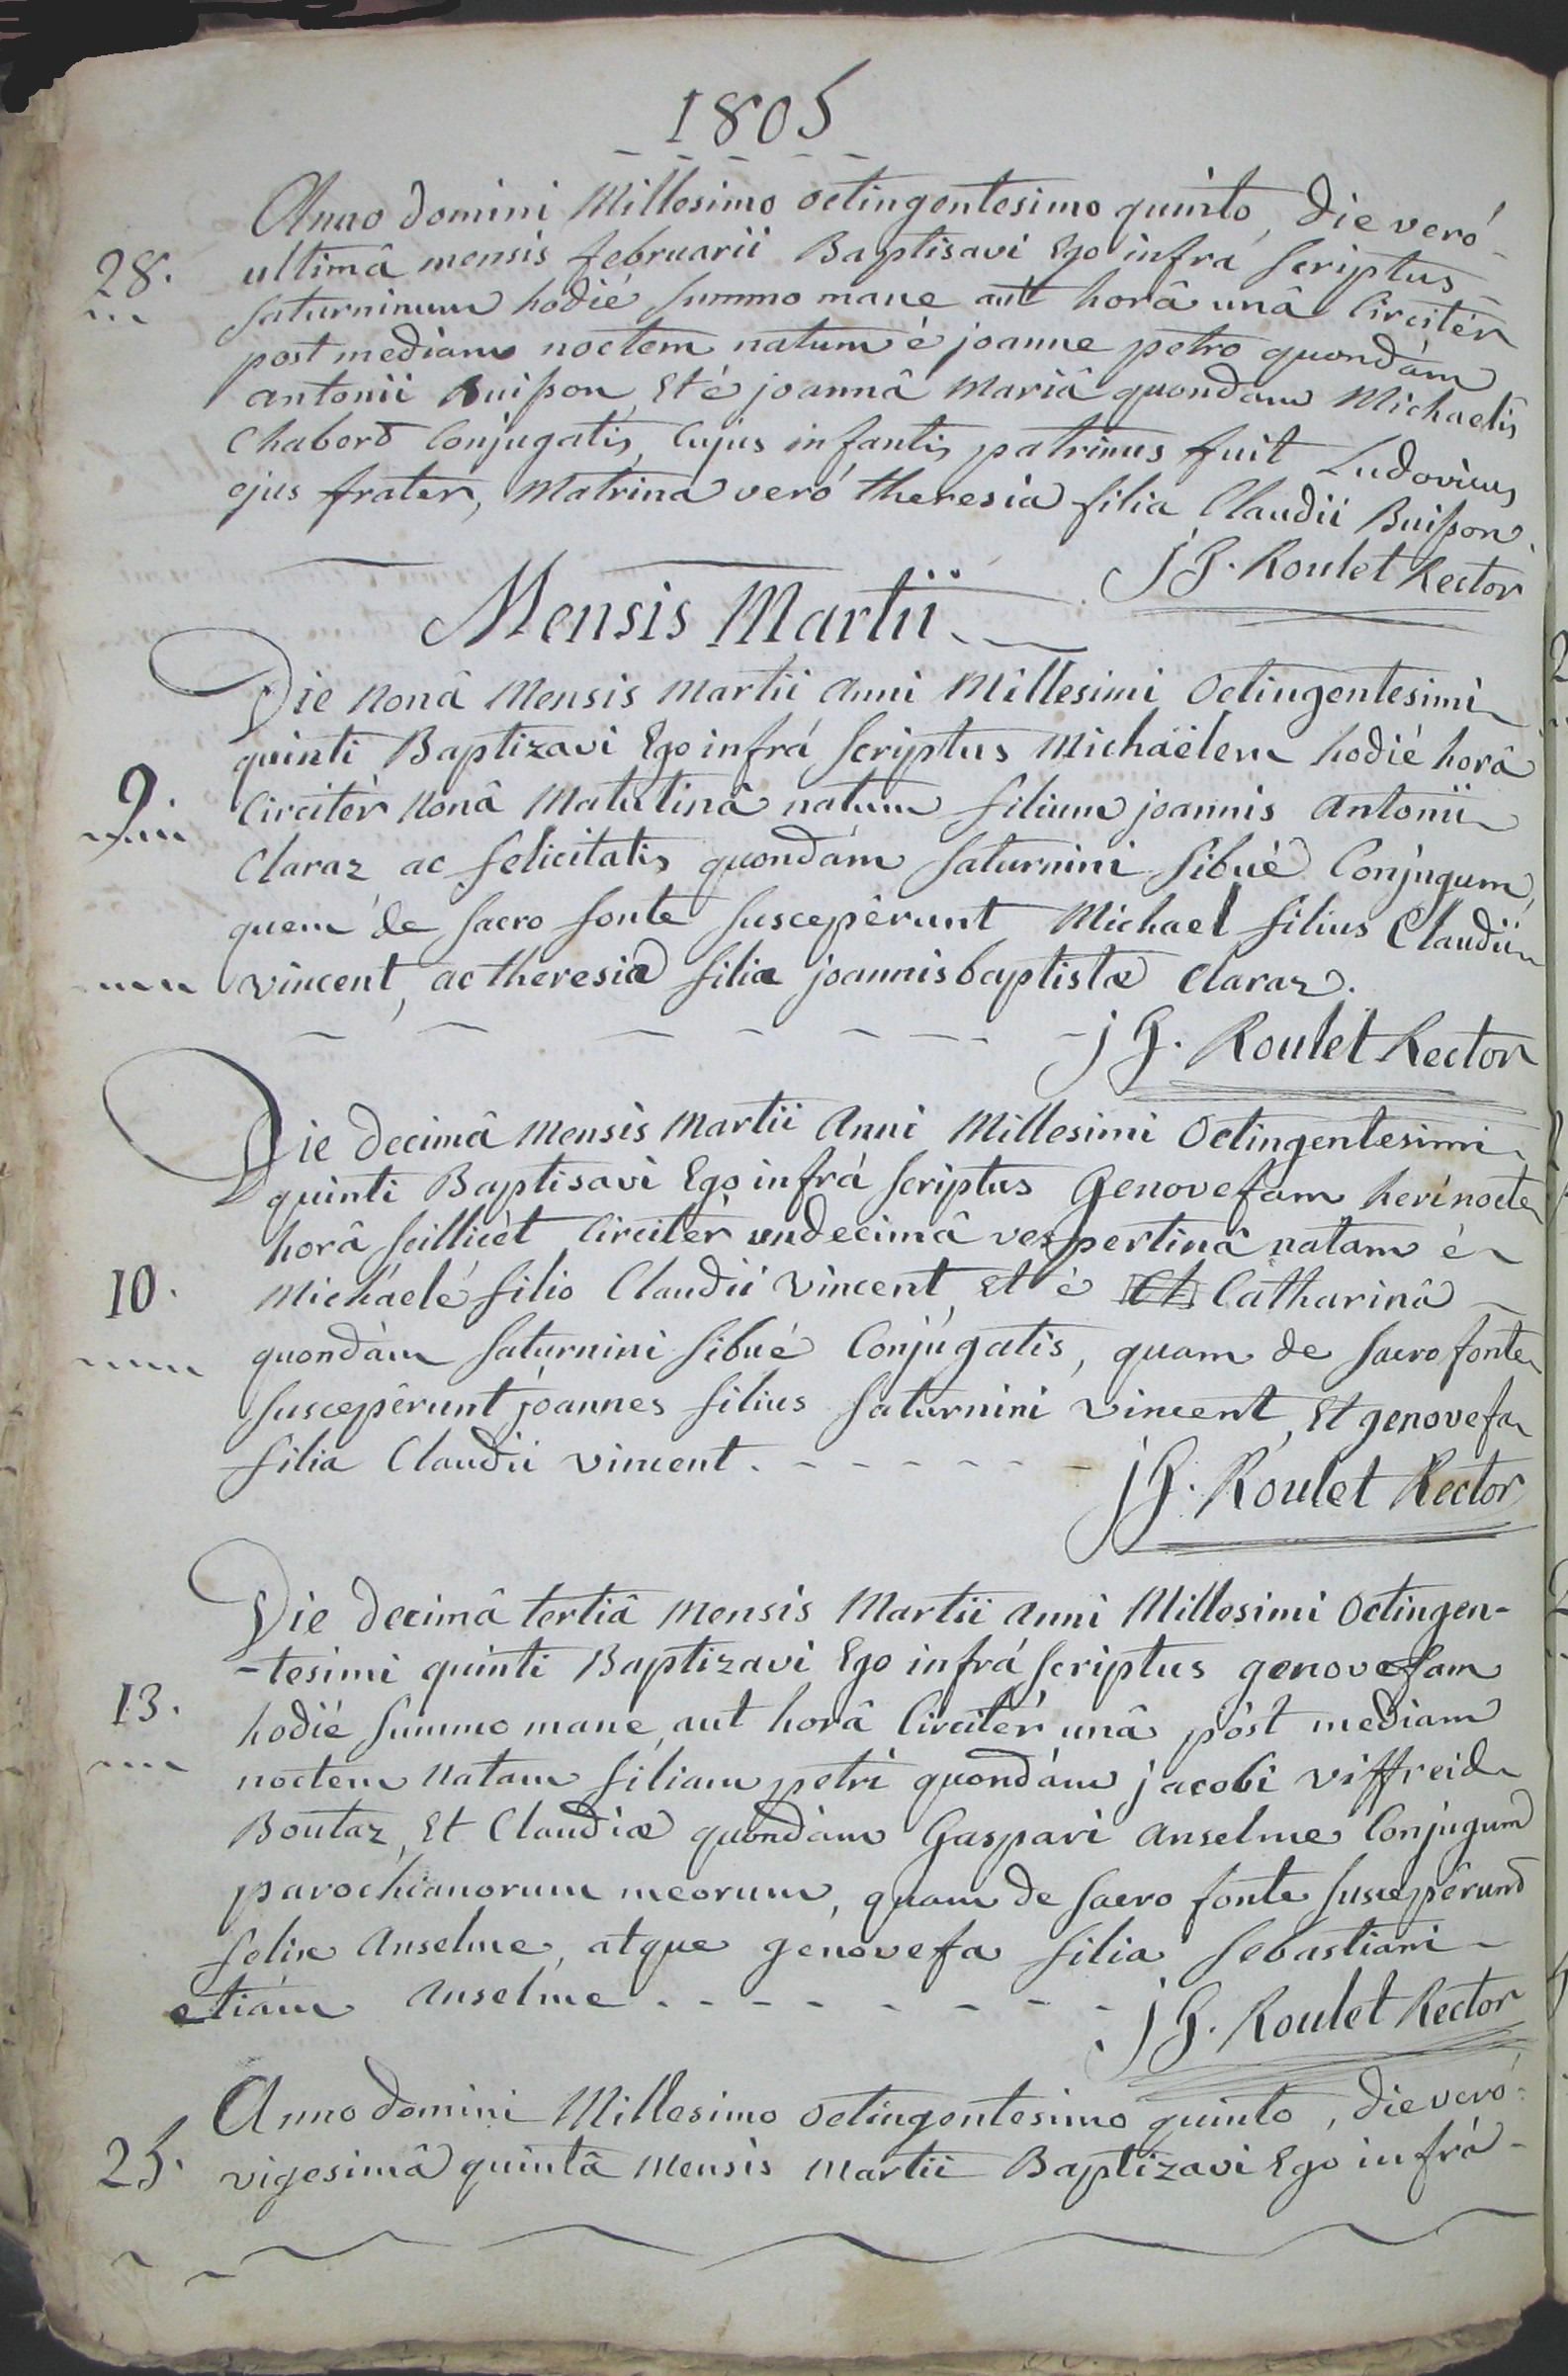 1805
Anno domini Millesimo octingentesimo quinto, die veró
28. ultimâ mensis februarii Baptisavi Ego infrá scriptus
saturninum hodié summo mane aut horâ unâ Circitèr
post mediam noctem natum é joanne petro quondám
antonii Buisson, Et é joannâ Mariâ quondam Michaelis
Chabord Conjugatis, Cujus infantis patrinus fuit Ludovicus
ejus frater, Matrina veró theresia filia Claudii Buisson.
JG. Roulet Rector
Mensis Martii
Die nonâ Mensis Martii anni Millesimi Octingentesimi
quinti Baptizavi Ego infrá scriptus Michaëlem hodié horâ
9. Circitèr nonâ Matutinâ natum filium joannis antonii
Claraz ac felicitatis quondám saturnini sibué Conjugum,
quem de sacro fonte suscepêrunt Michael filius Claudii
vincent, ac theresia filia joannisbaptistæ Claraz.
JG. Roulet Rector
Die decimâ Mensis Martii Anni Millesimi Octingentesimi
quinti Baptisavi Ego infrá scriptus Genovefam heri nocte
horâ scillicèt Circitèr undecimâ vespertinâ natam é
10. Michaelé filio Claudii vincent, et é Catharinâ
quondám saturnini sibué Conjugatis, quam de sacro fonte
suscepêrunt joannes filius saturnini vincent, Et genovefa
filia Claudii vincent.
JG. Roulet Rector
Die decimâ tertiâ Mensis Martii anni Millesimi Octingen-
-tesimi quinti Baptizavi Ego infrá scriptus genovefam
13. hodié summo mane, aut horâ Circitèr unâ pôst mediam
noctem natam filiam petri quondám jacobi viffreid
Boutaz, Et Claudiæ quondám Gaspari anselme Conjugum
parochianorum meorum, quam de sacro fonte suscepêrund
felix Anselme, atque genovefa filia sebastiani
etiám anselme
JG. Roulet Rector
Anno domini Millesimo octingentesimo quinto, die veró
25. vigesimâ quintâ Mensis Martii Baptizavi Ego infrá